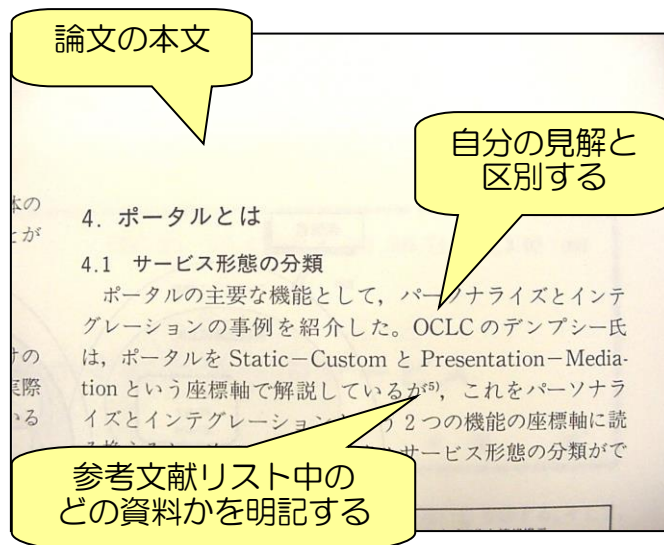 論文の本文
自分の見解と
区別する
体の
とが
4. ポータルとは
4.1 サービス形態の分類
ポータルの主要な機能として，パーソナライズとインテ
グレーションの事例を紹介した。OCLCのデンプシー氏
は，ポータルをStatic−CustomとPresentation−Media-
tionという座標軸で解説しているが5)，これをパーソナラ
イズとインテグレーション 2つの機能の座標軸に読
サービス形態の分類がで
実際
いる
参考文献リスト中の
どの資料かを明記する